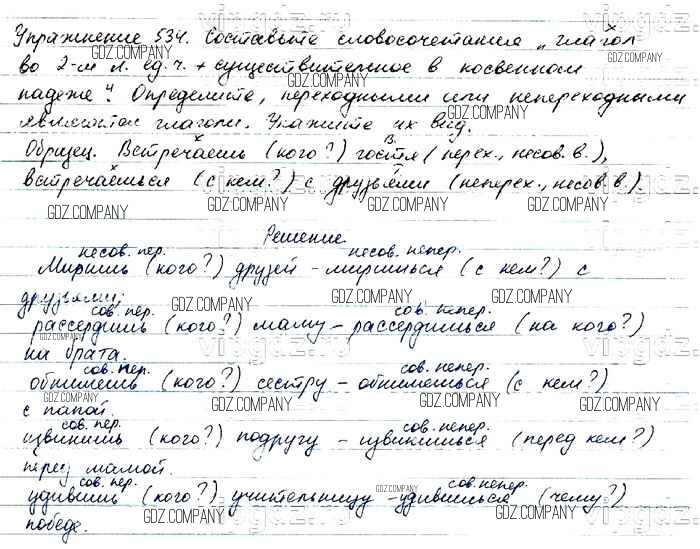 Упражнение 534. Составьте словосочетания „глагол
во 2-м л. ед. ч. + существительное в косвенном
падеже". Определите, переходными или непереходными
являются глаголы. Укажите их вид.
Образец. Встречаешь (кого?) гостя (перех., несов. в.),
встречаешься (с кем?) с друзьями (неперех., несов. в.).
Решение.
несов. пер. несов. непер.
Миришь (кого?) друзей - миришься (с кем?) с
друзьями;
сов. пер. сов. непер.
рассердишь (кого?) маму - рассердишься (на кого?)
на брата.
сов. пер. сов. непер.
обнимешь (кого?) сестру - обнимешься (с кем?)
с папой.
сов. пер. сов. непер.
извинишь (кого?) подругу - извинишься (перед кем?)
перед мамой.
сов. пер. сов. непер.
удивишь (кого?) учительницу - удивишься (чему?)
победе.
GDZ.COMPANY